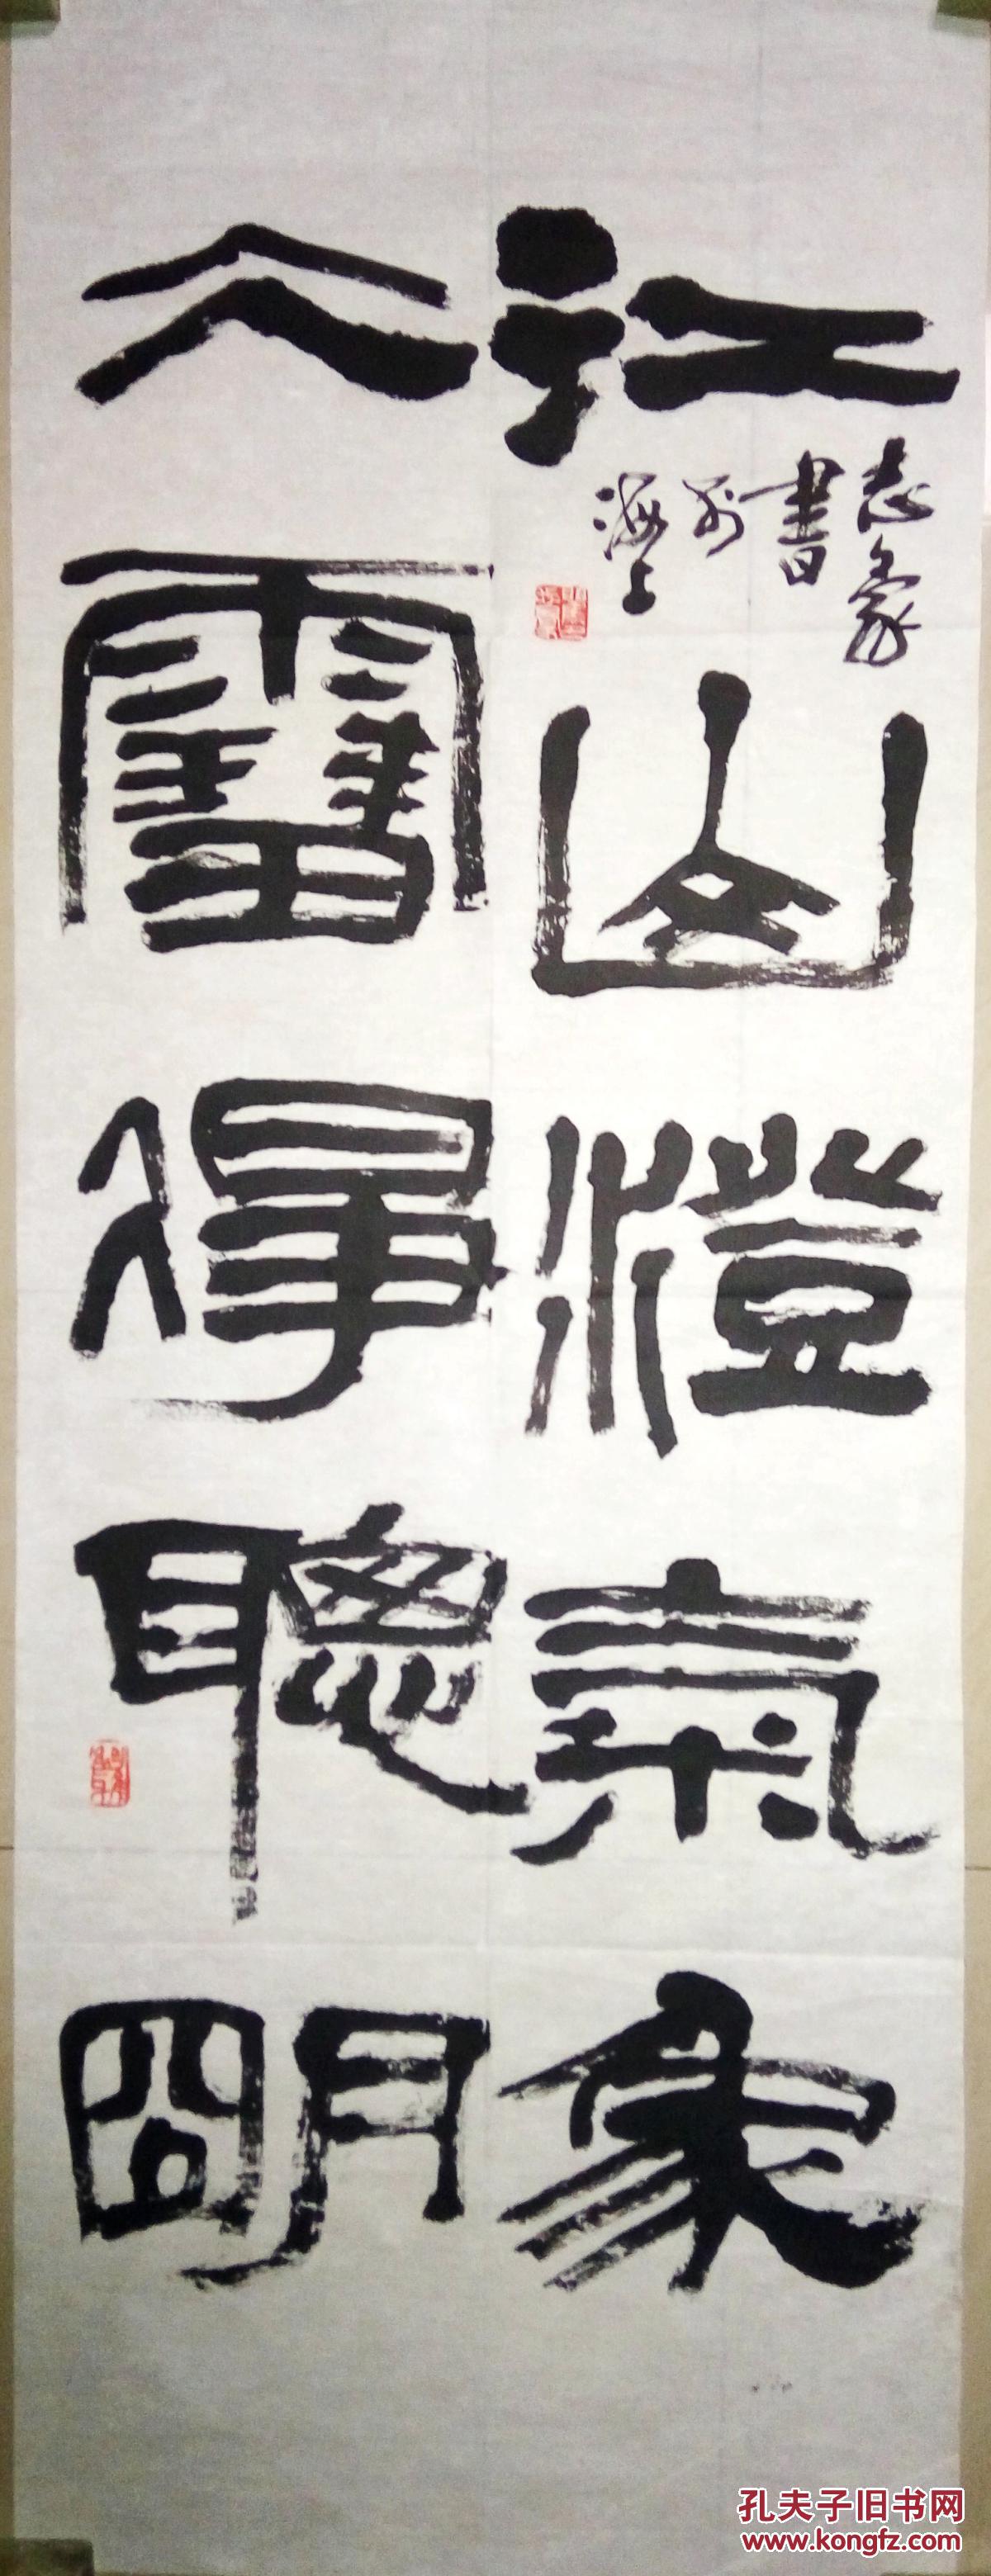 江山澄氣象
仌雪凈聰朙
志豪
書
於
海上
孔夫子旧书网
www.kongfz.com